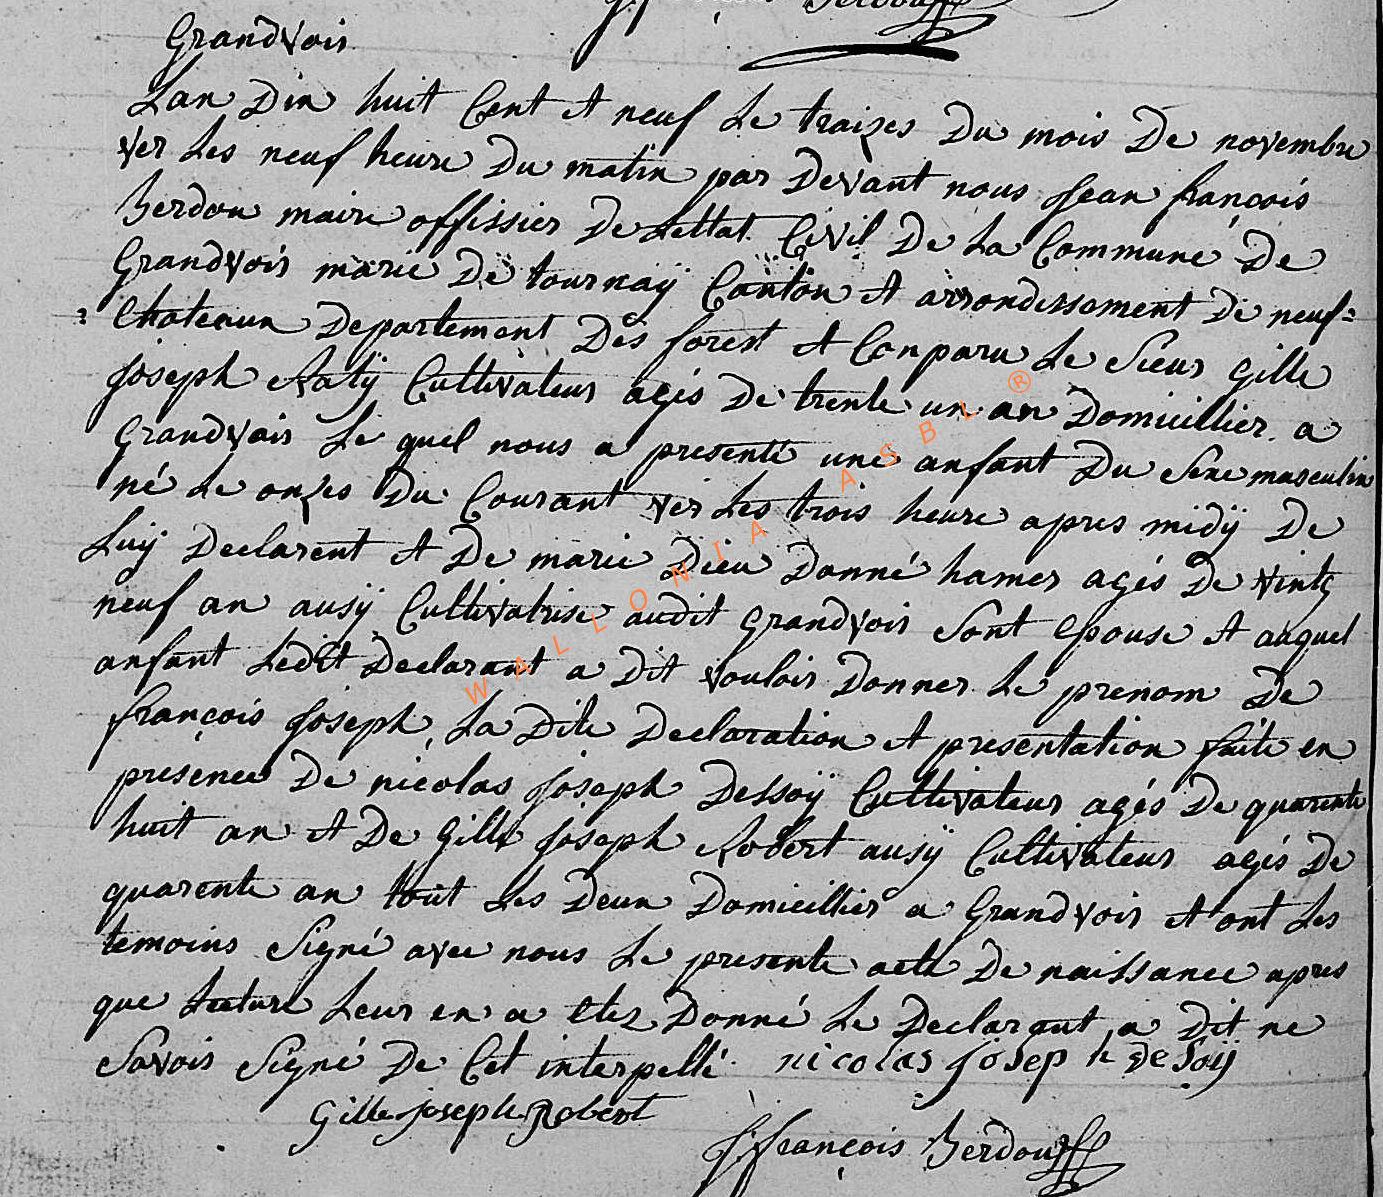 Grandvoir
Lan Dix huit Cent et neuf Le traizes Du mois De novembre
ver Les neuf heure Du matin par Devant nous Jean françois
Berdou maire offissier De Lettat Civil De La Commune De
Grandvoir marie De tournaÿ Canton et arrondissement De neuf=
Chateaux Departement Des forest et Conparu Le Sieur Gille
Joseph Ratÿ Cultivateur agés De trente un an Domicillier a
Grandvoir Le quel nous a presenté une anfant Du Sexe masculin
né Le onzes Du Courant ver Les trois heure apres midÿ De
Luÿ Declarent et De marie Dieu Donné hamer agés De vintg
neuf an ausÿ Cultivatrise audit Grandvoir Sont Epouse et auquel
anfant Ledit Declarant a Dit vouloir Donner Le prenom De
françois Joseph, La Dite Declaration et presentation faite en
presence De nicolas Joseph Dessoÿ Cultivateur agés De quarente
huit an et De Gille Joseph Robert ausÿ Cultivateur agés De
quarente an tout Les Deux Domicillier a Grandvoir et ont Les
temoins Signé avec nous Le presente acte De naissance apres
que Lecture Leur en a Etez Donné Le Declarant a Dit ne
Savoir Signé De Cet interpellé nicolas Josep h de Soÿ
Gille joseph Robert
J. françois Berdou
WALLONIA ASBL ®